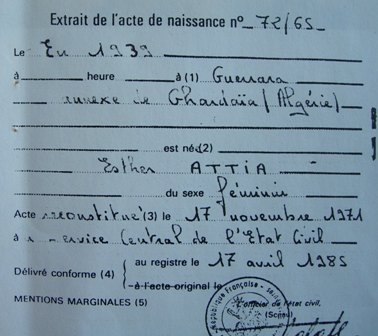 Extrait de l'acte de naissance nº 72/65
Le En 1939
à heure à (1) Guerrara
annexe de Ghardaïa (Algérie)
est né(2)
Esther ATTIA
du sexe féminin
Acte reconstitué (3) le 17 novembre 1971
à service Central de l'Etat Civil
Délivré conforme (4) au registre le 17 avril 1985
à l'acte original le
MENTIONS MARGINALES (5)
L'officier de l'état civil,
(Sceau)
République Française